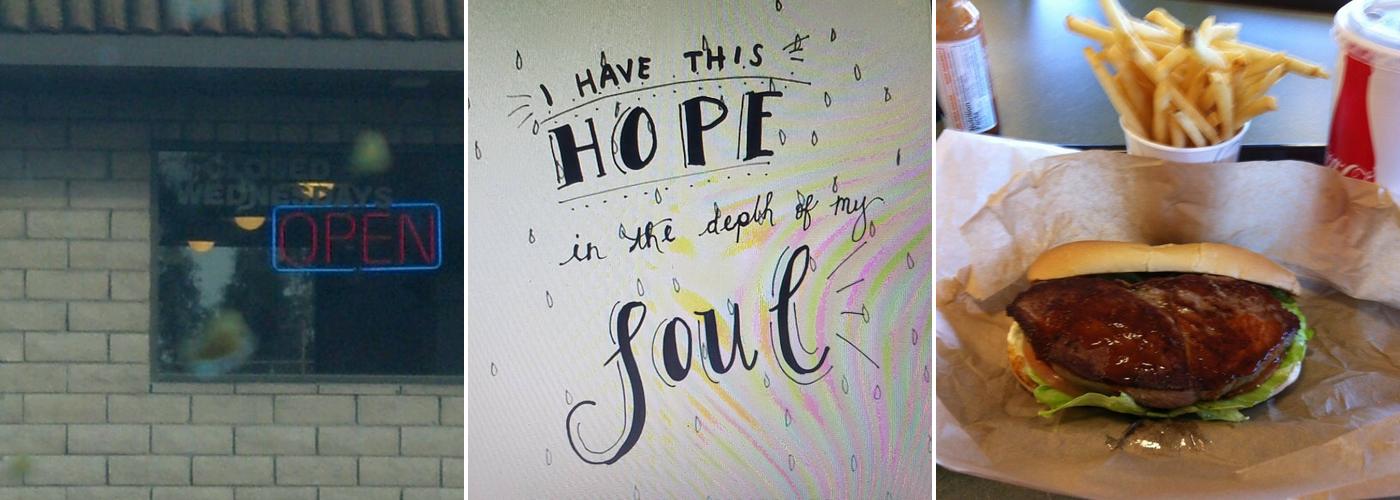 CLOSED
WEDNESDAYS
OPEN
I HAVE THIS
HOPE
in the depth of my
soul